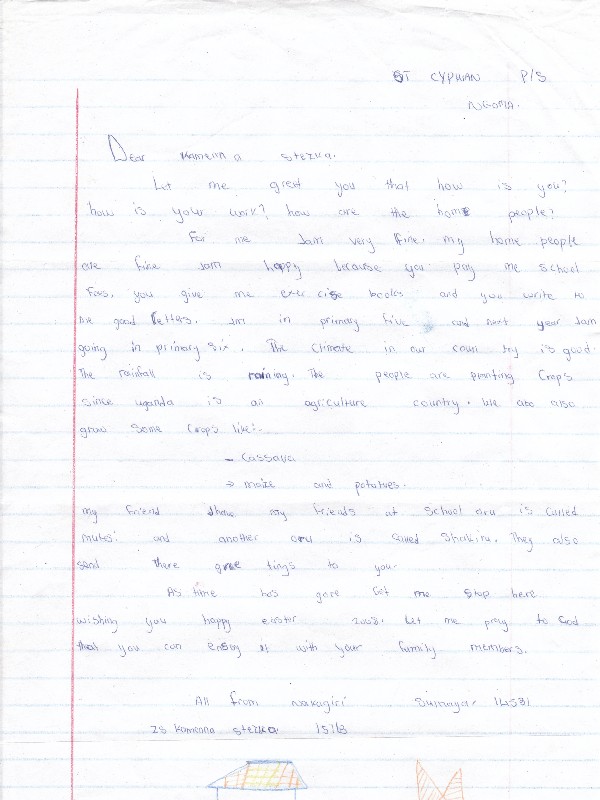 ST CYPRIAN P/S
NGOMA.
Dear Kamenna stezka.
Let me greet you that how is you?
how is your work? how are the home people?
For me Iam very fine. my home people
are fine Iam happy because you pay me school
Fees, you give me exercise books and you write to
me good letters. Im in primary five and next year Iam
going in primary six. The Climate in our coun try is good.
The rainfall is raining. The people are planting Crops
since uganda is an agriculture country. We are also
grow some Crops like:-
- Cassava
→ maize and potatoes.
my friend Ihave my friends at School is Called
mutesi and another is Called Shakiru. They also
send there gree tings to you.
As time has gone let me stop here
wishing you happy easter 2008. Let me pray to God
that you can enjoy it with your family members.
All from Nakagiri Sumaya 14531
ZS Kamenna stezka